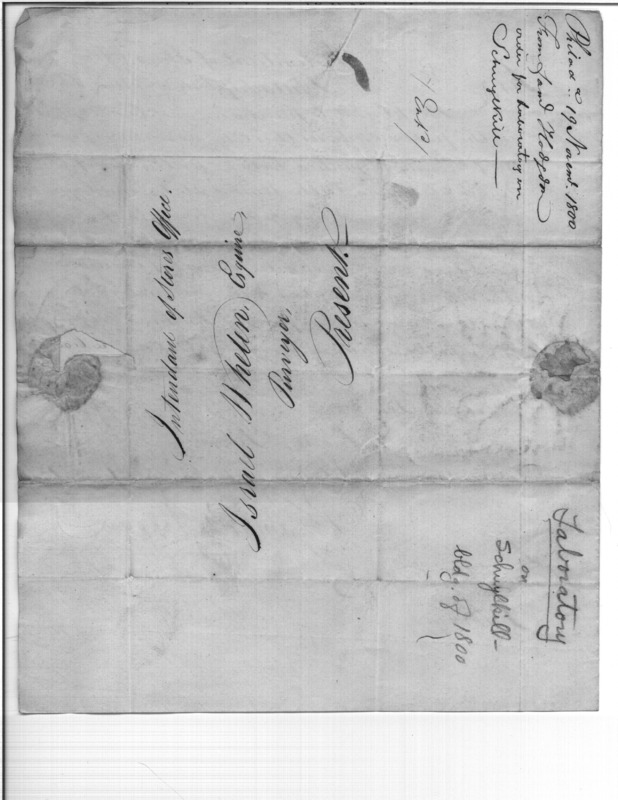 Philada. 19 Novemr. 1800
From Saml Hodgdon
order for Laboratory on
Schuylkill —
Intendant of Stores Office.
Israel Whelen Esquire
Purveyor
Present.
Laboratory
on
Schuylkill —
bldg. of 1800